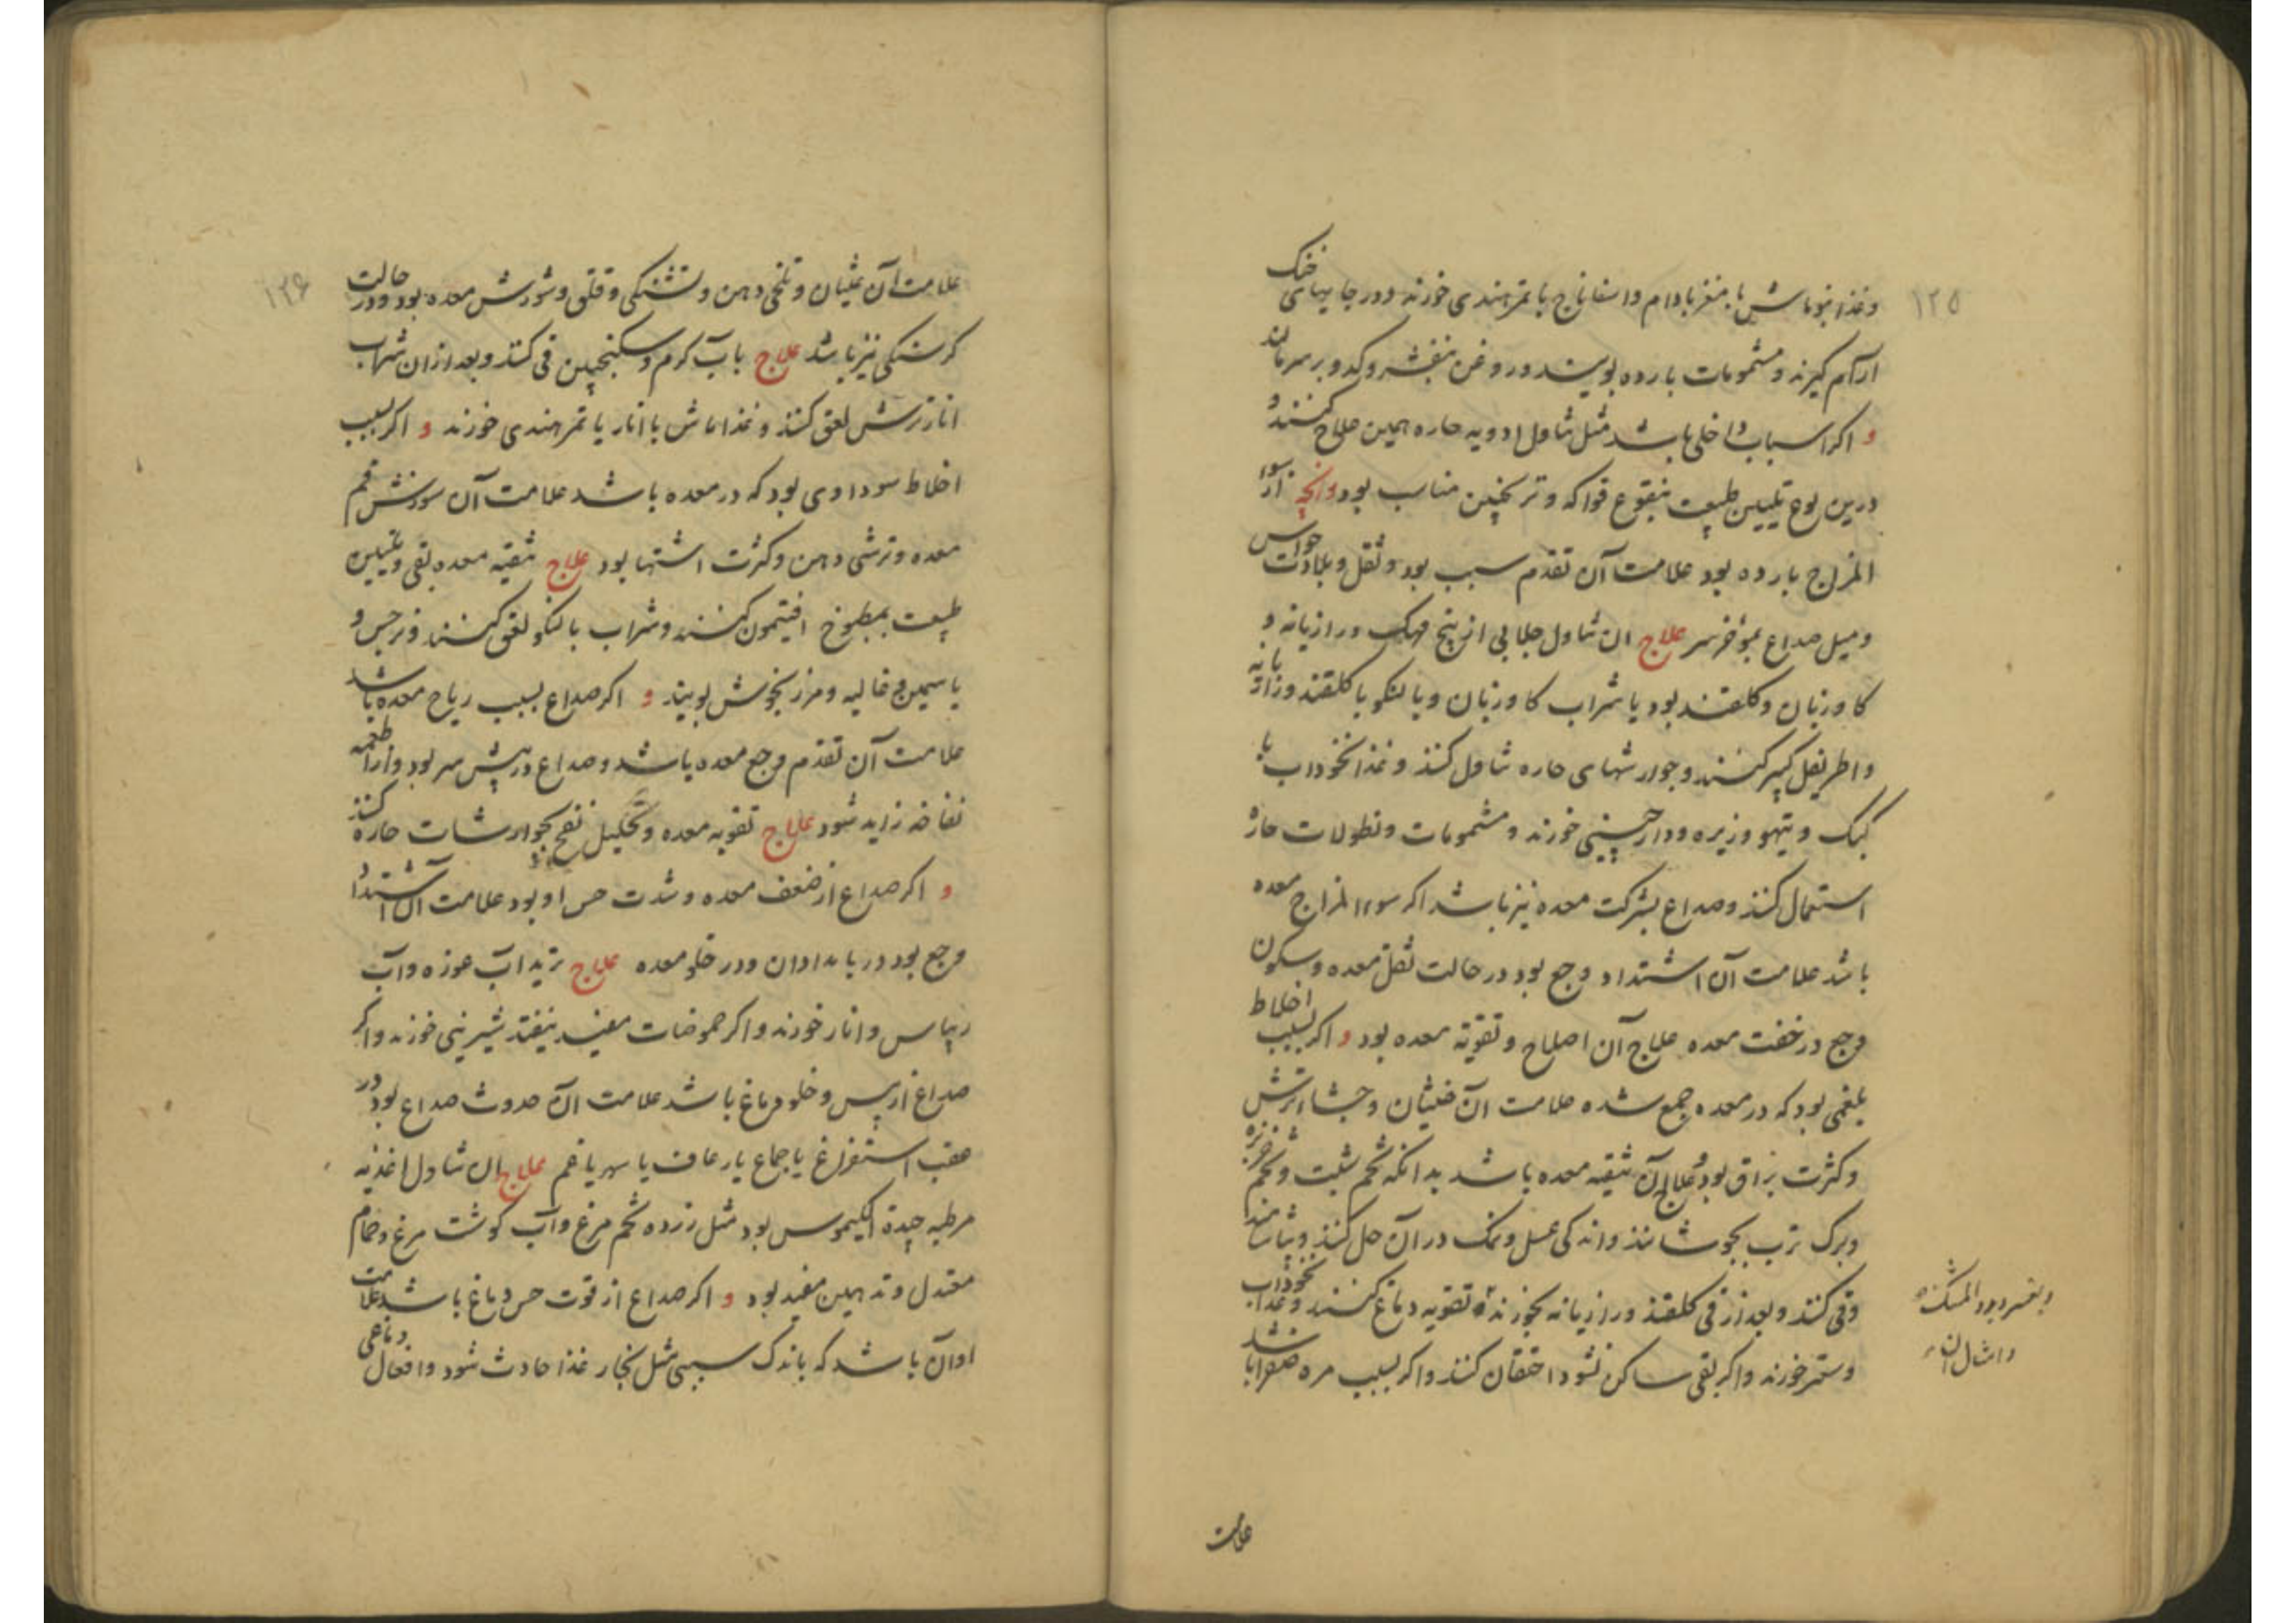 ۱۲۵
وغذا بنوماش با مغز بادام واسفاناج با تمر هندی خورند ودر جایهای خنک
آرام گیرند ومشمومات بارده بویند وروغن بنفشه وکدو بر سر مالند
و اکر اسباب داخلی باشد مثل تناول ادویه حاره همین علاج کنند و
درین نوع تلیین طبیعت بنقوع فواکه وترنجبین مناسب بود وانچه از سوء
المزاج بارده بود علامت آن تقدم سبب بود وثقل وبلادت حواس
ومیل صداع بمؤخر سر علاج ان تناول جلابی از بیخ مهک ورازیانه و
کاوزبان وکلقند بود یا شراب کاوزبان وبالنکو با کلقند ورازیانه
واطریفل کبیر کنند وجوارشهای حاره تناول کنند وغذا نخوداب با
کبک وتیهو وزیره ودارچینی خورند ومشمومات ونطولات حاره
استعمال کنند وصداع بشرکت معده نیز باشد اکر سوء المزاج معده
باشد علامت آن اشتداد وجع بود در حالت ثقل معده وسکون
وجع در خفت معده علاج آن اصلاح وتقویة معده بود و اکر بسبب اخلاط
بلغمی بود که در معده جمع شده علامت ان غثیان وجشا ترش
وکثرت بزاق بود وعلاج آن تنقیه معده باشد بدانکه تخم شبت وتخم خربزه
وبرک ترب بجوشانند واندکی عسل ونمک در آن حل کنند وبیاشامند
وقی کنند وبعد از قی کلقند ورازیانه بخورند تقویه دماغ کنند وغذا نخوداب
وستمر خورند واکر بقی ساکن نشود احتقان کنند واکر بسبب مره صفرا باشد
وامثال ان
علامت
۱۲۶
علامت آن غثیان وتلخی دهن وتشنکی وقلق وشورش معده بود ودر حالت
کرسنکی نیز باشد علاج باب کرم وسکنجبین قی کنند وبعد از ان شراب
انار ترش لعق کنند وغذا ماش با انار یا تمر هندی خورند و اکر بسبب
اخلاط سوداوی بود که در معده باشد علامت آن سوزش فم
معده وترشی دهن وکثرت اشتها بود علاج تنقیه معده بقی وتلیین
طبیعت بمطبوخ افتیمون کنند وشراب بالنکو لعق کنند ونرجس و
یاسمین وغالیه ومرزنجوش بویند و اکر صداع بسبب ریاح معده باشد
علامت آن تقدم وجع معده باشد وصداع در پیش سر بود واز اطعمه
نفاخه زاید شود علاج تقویه معده وتحلیل نفخ بجوارشات حاره کنند
و اکر صداع از ضعف معده وشدت حس او بود علامت آن اشتداد
وجع بود در بامدادان ودر خلو معده علاج ترید اب غوزه واب
ریباس وانار خورند واکر حموضات مفید نیفتد شیرینی خورند واکر
صداع از یبس وخلو دماغ باشد علامت ان حدوث صداع بود در
عقب استفراغ یا جماع یا رعاف یا سهر یا غم علاج ان تناول اغذیه
مرطبه جیدة الکیموس بود مثل زرده تخم مرغ وآب کوشت مرغ وحمام
معتدل وتدهین مفید بود و اکر صداع از قوت حس دماغ باشد علامت
او آن باشد که باندک سببی مثل بخار غذا حادث شود وافعال دماغی